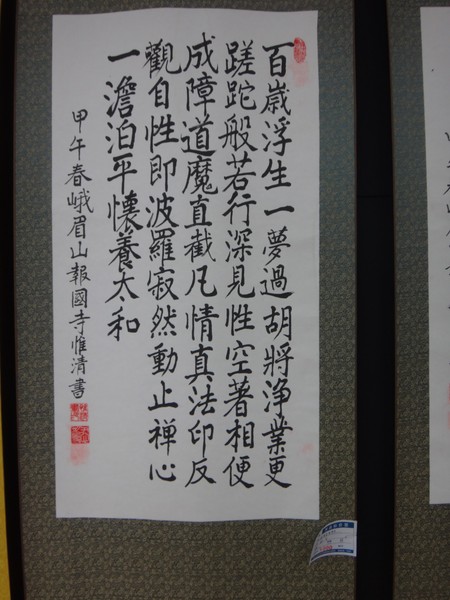 百歲浮生一夢過胡將淨業更
蹉跎般若行深見性空著相便
成障道魔直截凡情真法印反
觀自性即波羅寂然動止禅心
一澹泊平懷養太和
甲午春峨眉山報國寺惟清書